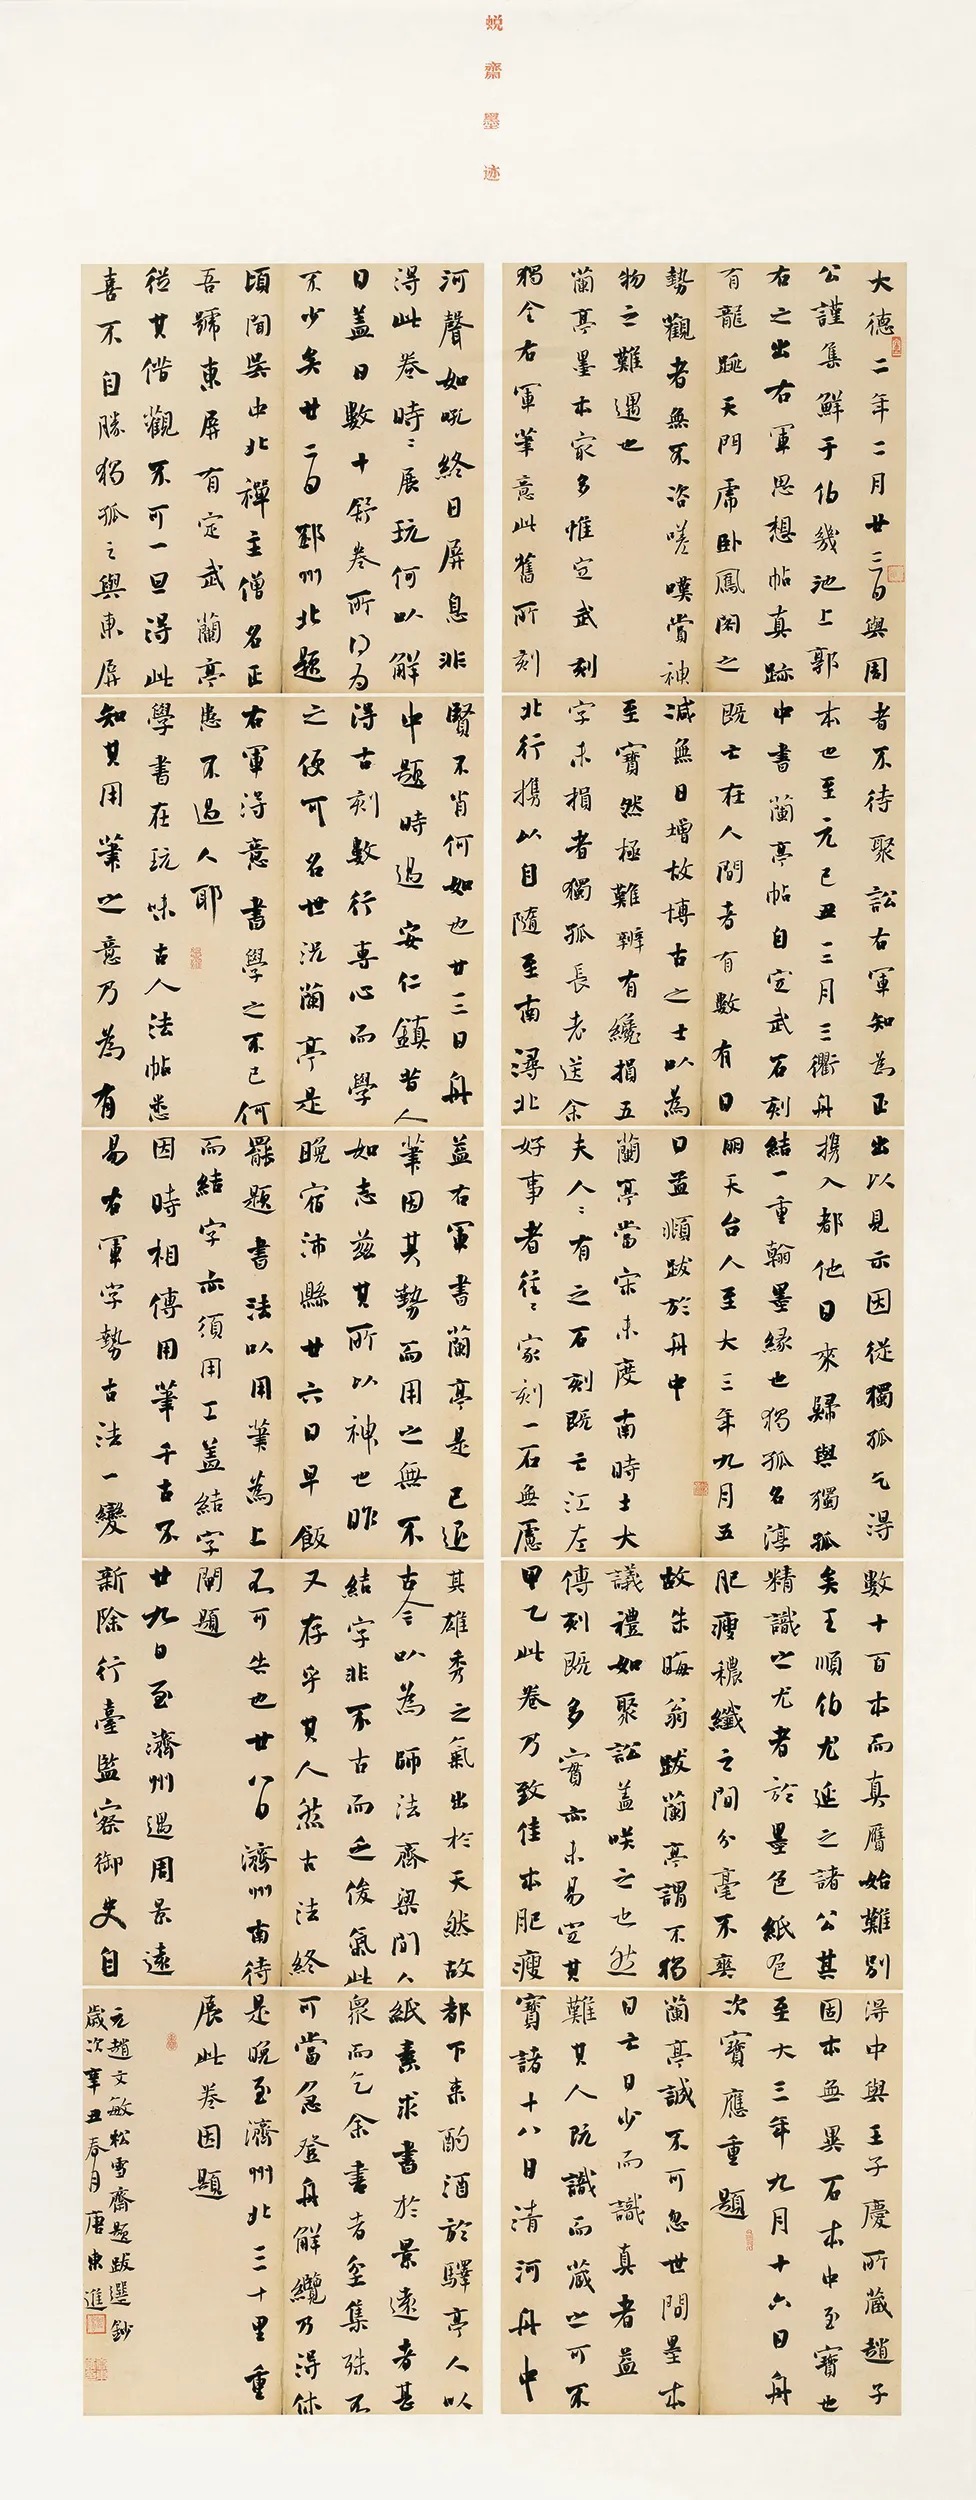 蜕齋墨迹
大德二年二月廿三日與周
公謹集鮮于伯幾池上郭
右之出右軍思想帖真跡
有龍跳天門虎卧鳳閣之
勢觀者無不咨嗟嘆賞神
物之難遇也
蘭亭墨本家多惟定武刻
獨全右軍筆意此舊所刻
者不待聚訟右軍知為正
本也至元己丑三月三衢舟
中書蘭亭帖自定武石刻
既亡在人間者有數有日
減無日增故博古之士以為
至寶然極難辨有纔損五
字未損者獨孤長老送余
北行攜以自隨至南潯北
出以見示因從獨孤乞得
攜入都他日來歸與獨孤
結一重翰墨緣也獨孤名淳
朋天台人至大三年九月五
日孟頫跋於舟中
蘭亭當宋未度南時士大
夫人〻有之石刻既亡江左
好事者往〻家刻一石無慮
數十百本而真贋始難別
矣王順伯尤延之諸公其
精識之尤者於墨色紙色
肥瘦穠纖之間分毫不爽
故朱晦翁跋蘭亭謂不獨
議禮如聚訟蓋咲之也然
傳刻既多實亦未易定其
甲乙此卷乃致佳本肥瘦
得中與王子慶所藏趙子
固本無異石本中至寶也
至大三年九月十六日舟
次寶應重題
蘭亭誠不可忽世間墨本
日亡日少而識真者益
難其人既識而藏之可不
寶諸十八日清河舟中
河聲如吼終日屏息非
得此卷時〻展玩何以解
日蓋日數十舒卷所得為
不少矣廿二日邳州北題
頃聞吳中北禪主僧名正
吾號東屏有定武蘭亭
從其借觀不可一旦得此
喜不自勝獨孤之與東屏
賢不肖何如也廿三日舟
中題時過安仁鎮昔人
得古刻數行專心而學
之便可名世況蘭亭是
右軍得意書學之不已何
患不過人耶
學書在玩味古人法帖悉
知其用筆之意乃為有
益右軍書蘭亭是已退
筆因其勢而用之無不
如志茲其所以神也昨
晚宿沛縣廿六日早飯
罷題書法以用筆為上
而結字亦須用工蓋結字
因時相傳用筆千古不
易右軍字勢古法一變
其雄秀之氣出於天然故
古今〻以為師法齊梁間人
結字非不古而乏俊氣此
又存乎其人然古法終
不可失也廿八日濟州南待
閘題
廿九日至濟州遇周景遠
新除行臺監察御史自
都下来酌酒於驛亭人以
紙素求書於景遠者甚
衆而乞余書者坌集殊不
可當急登舟解纜乃得休
是晚至濟州北三十里重
展此卷因題
元趙文敏松雪齋題跋選鈔
歲次辛丑春月唐東進